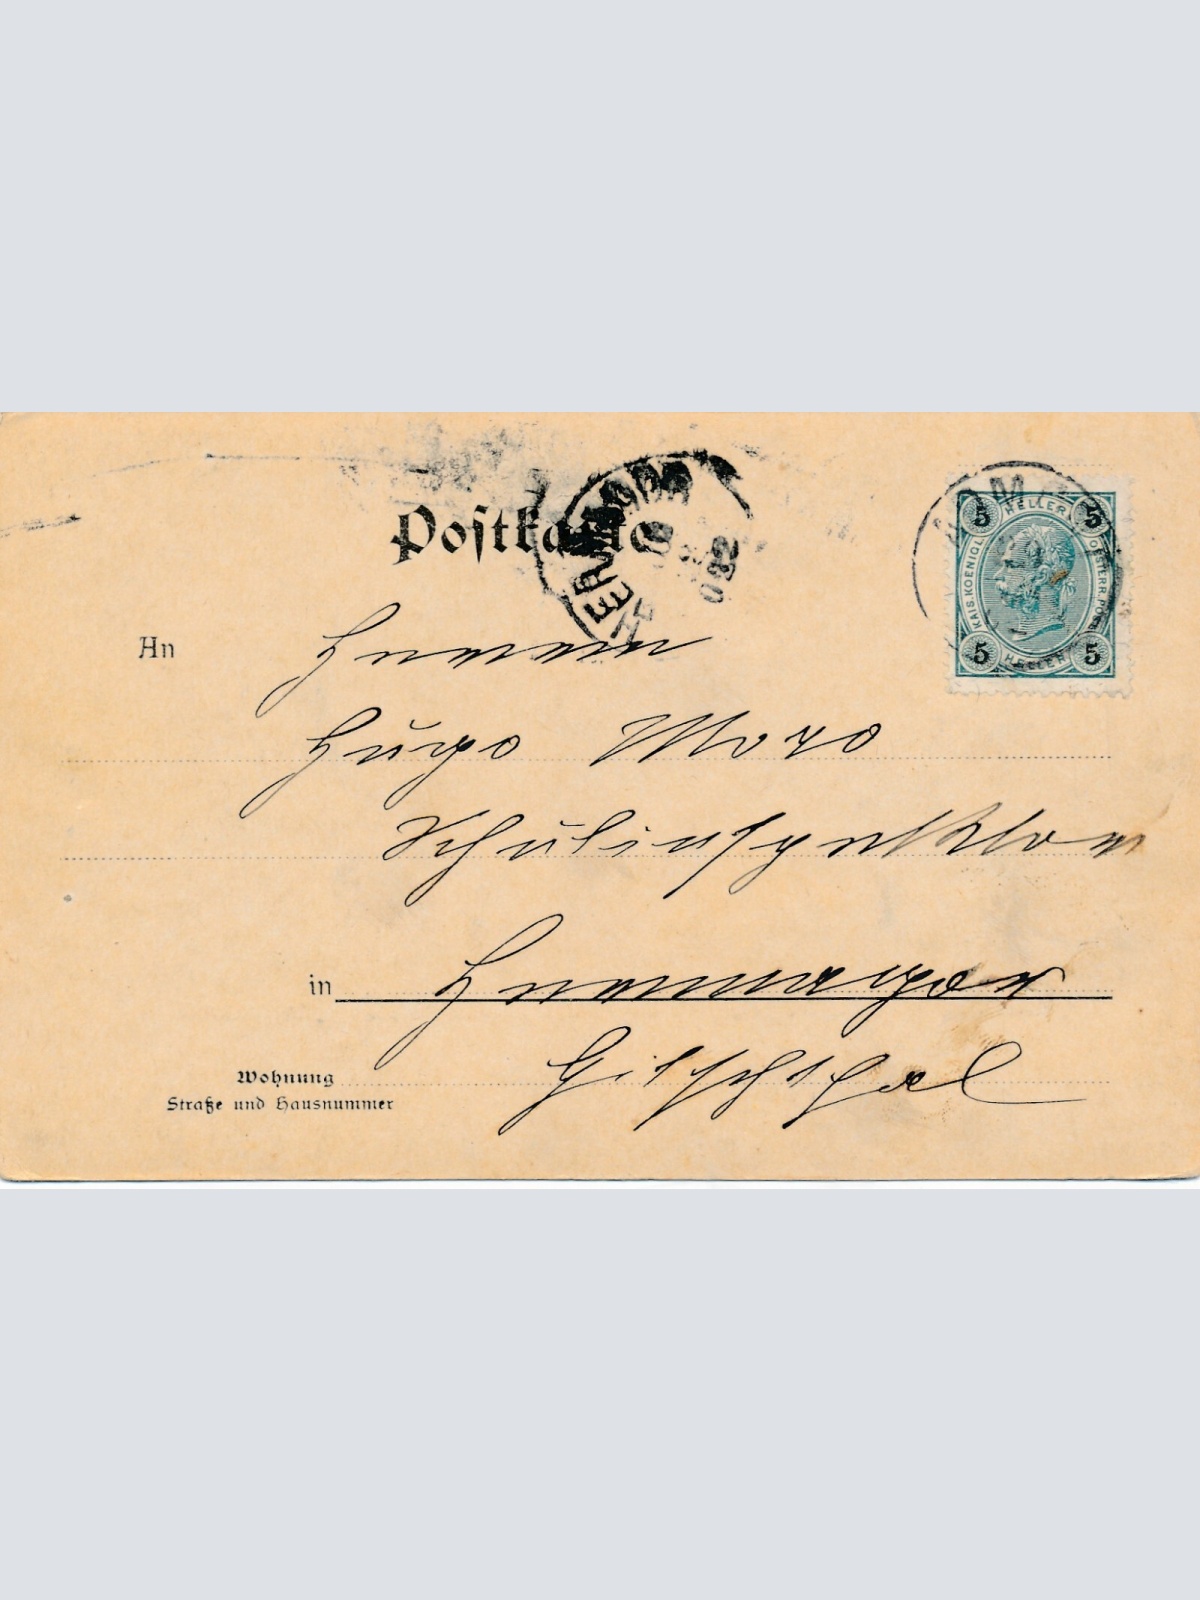 Postkarte
HERMAGOR
5 HELLER 5
KAIS. KOENIGL. OESTERR. POST
5 HELLER 5
An Herrn
Hugo Moro
Schulinspektor
in Hermagor
Gitschthal
Wohnung
Straße und Hausnummer